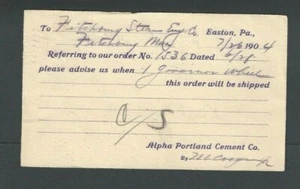 To Fitchburg Steam Eng Co. Easton, Pa.,
Fitchburg Mass 7/26 1904
Referring to our order No. 1536 Dated 6/21
please advise us when 1 Governor Wheel
this order will be shipped
Alpha Portland Cement Co.
By